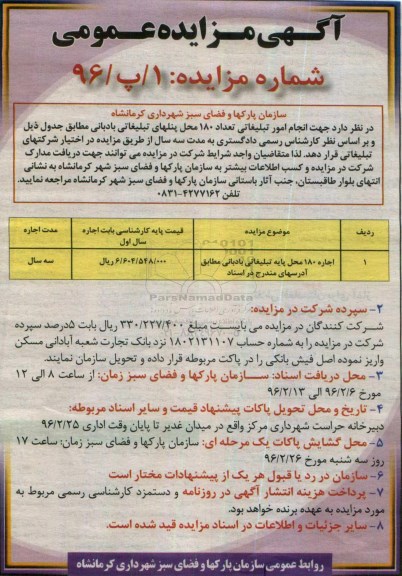 آگهی مزایده عمومی
شماره مزایده: ۱/پ/۹۶
سازمان پارکها و فضای سبز شهرداری کرمانشاه
در نظر دارد جهت انجام امور تبلیغاتی تعداد ۱۸۰ محل پنلهای تبلیغاتی بادبانی مطابق جدول ذیل
و بر اساس نظر کارشناس رسمی دادگستری به مدت سه سال از طریق مزایده در اختیار شرکتهای
تبلیغاتی قرار دهد. لذا متقاضیان واجد شرایط شرکت در مزایده می توانند جهت دریافت مدارک
شرکت در مزایده و کسب اطلاعات بیشتر به سازمان پارکها و فضای سبز شهر کرمانشاه به نشانی
انتهای بلوار طاقبستان، جنب آثار باستانی سازمان پارکها و فضای سبز شهر کرمانشاه مراجعه نمایید.
تلفن ۴۲۷۷۱۶۲-۰۸۳۱
ردیف موضوع مزایده قیمت پایه کارشناسی بابت اجاره سال اول مدت اجاره
۱ اجاره ۱۸۰ محل پایه تبلیغاتی بادبانی مطابق آدرسهای مندرج در اسناد ۶/۶۰۴/۵۴۸/۰۰۰ ریال سه سال
ParsNamadData
۲- سپرده شرکت در مزایده:
شرکت کنندگان در مزایده می بایست مبلغ ۳۳۰/۲۲۷/۴۰۰ ریال بابت ۵درصد سپرده
شرکت در مزایده را به شماره حساب ۱۸۰۲۱۳۱۱۰۷ نزد بانک تجارت شعبه آبادانی مسکن
واریز نموده اصل فیش بانکی را در پاکت مربوطه قرار داده و تحویل سازمان نمایند.
۳- محل دریافت اسناد: سازمان پارکها و فضای سبز زمان: از ساعت ۸ الی ۱۲
مورخ ۹۶/۲/۶ الی ۹۶/۲/۱۳
۴- تاریخ و محل تحویل پاکات پیشنهاد قیمت و سایر اسناد مربوطه:
دبیرخانه حراست شهرداری مرکز واقع در میدان غدیر تا پایان وقت اداری ۹۶/۲/۲۵
۵- محل گشایش پاکات یک مرحله ای: سازمان پارکها و فضای سبز زمان: ساعت ۱۷
روز سه شنبه مورخ ۹۶/۲/۲۶
۶- سازمان در رد یا قبول هر یک از پیشنهادات مختار است
۷- پرداخت هزینه انتشار آگهی در روزنامه و دستمزد کارشناسی رسمی مربوط به
مورد مزایده به عهده برنده خواهد بود.
۸- سایر جزئیات و اطلاعات در اسناد مزایده قید شده است.
روابط عمومی سازمان پارکها و فضای سبز شهرداری کرمانشاه